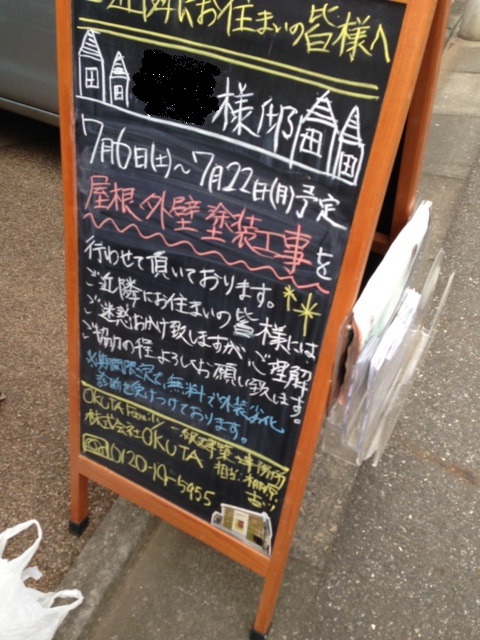 ご近隣にお住まいの皆様へ
様邸
7月6日(土)～7月22日(月)予定
屋根・外壁塗装工事を
行わせて頂いております。
ご近隣にお住まいの皆様には
ご迷惑おかけ致しますが、ご理解
ご協力の程よろしくお願い致します。
※期間限定で、無料で外装劣化
診断を受けつけております。
OKUTA Family 一級建築士事務所
株式会社OKUTA 担当:
0120-14-5955